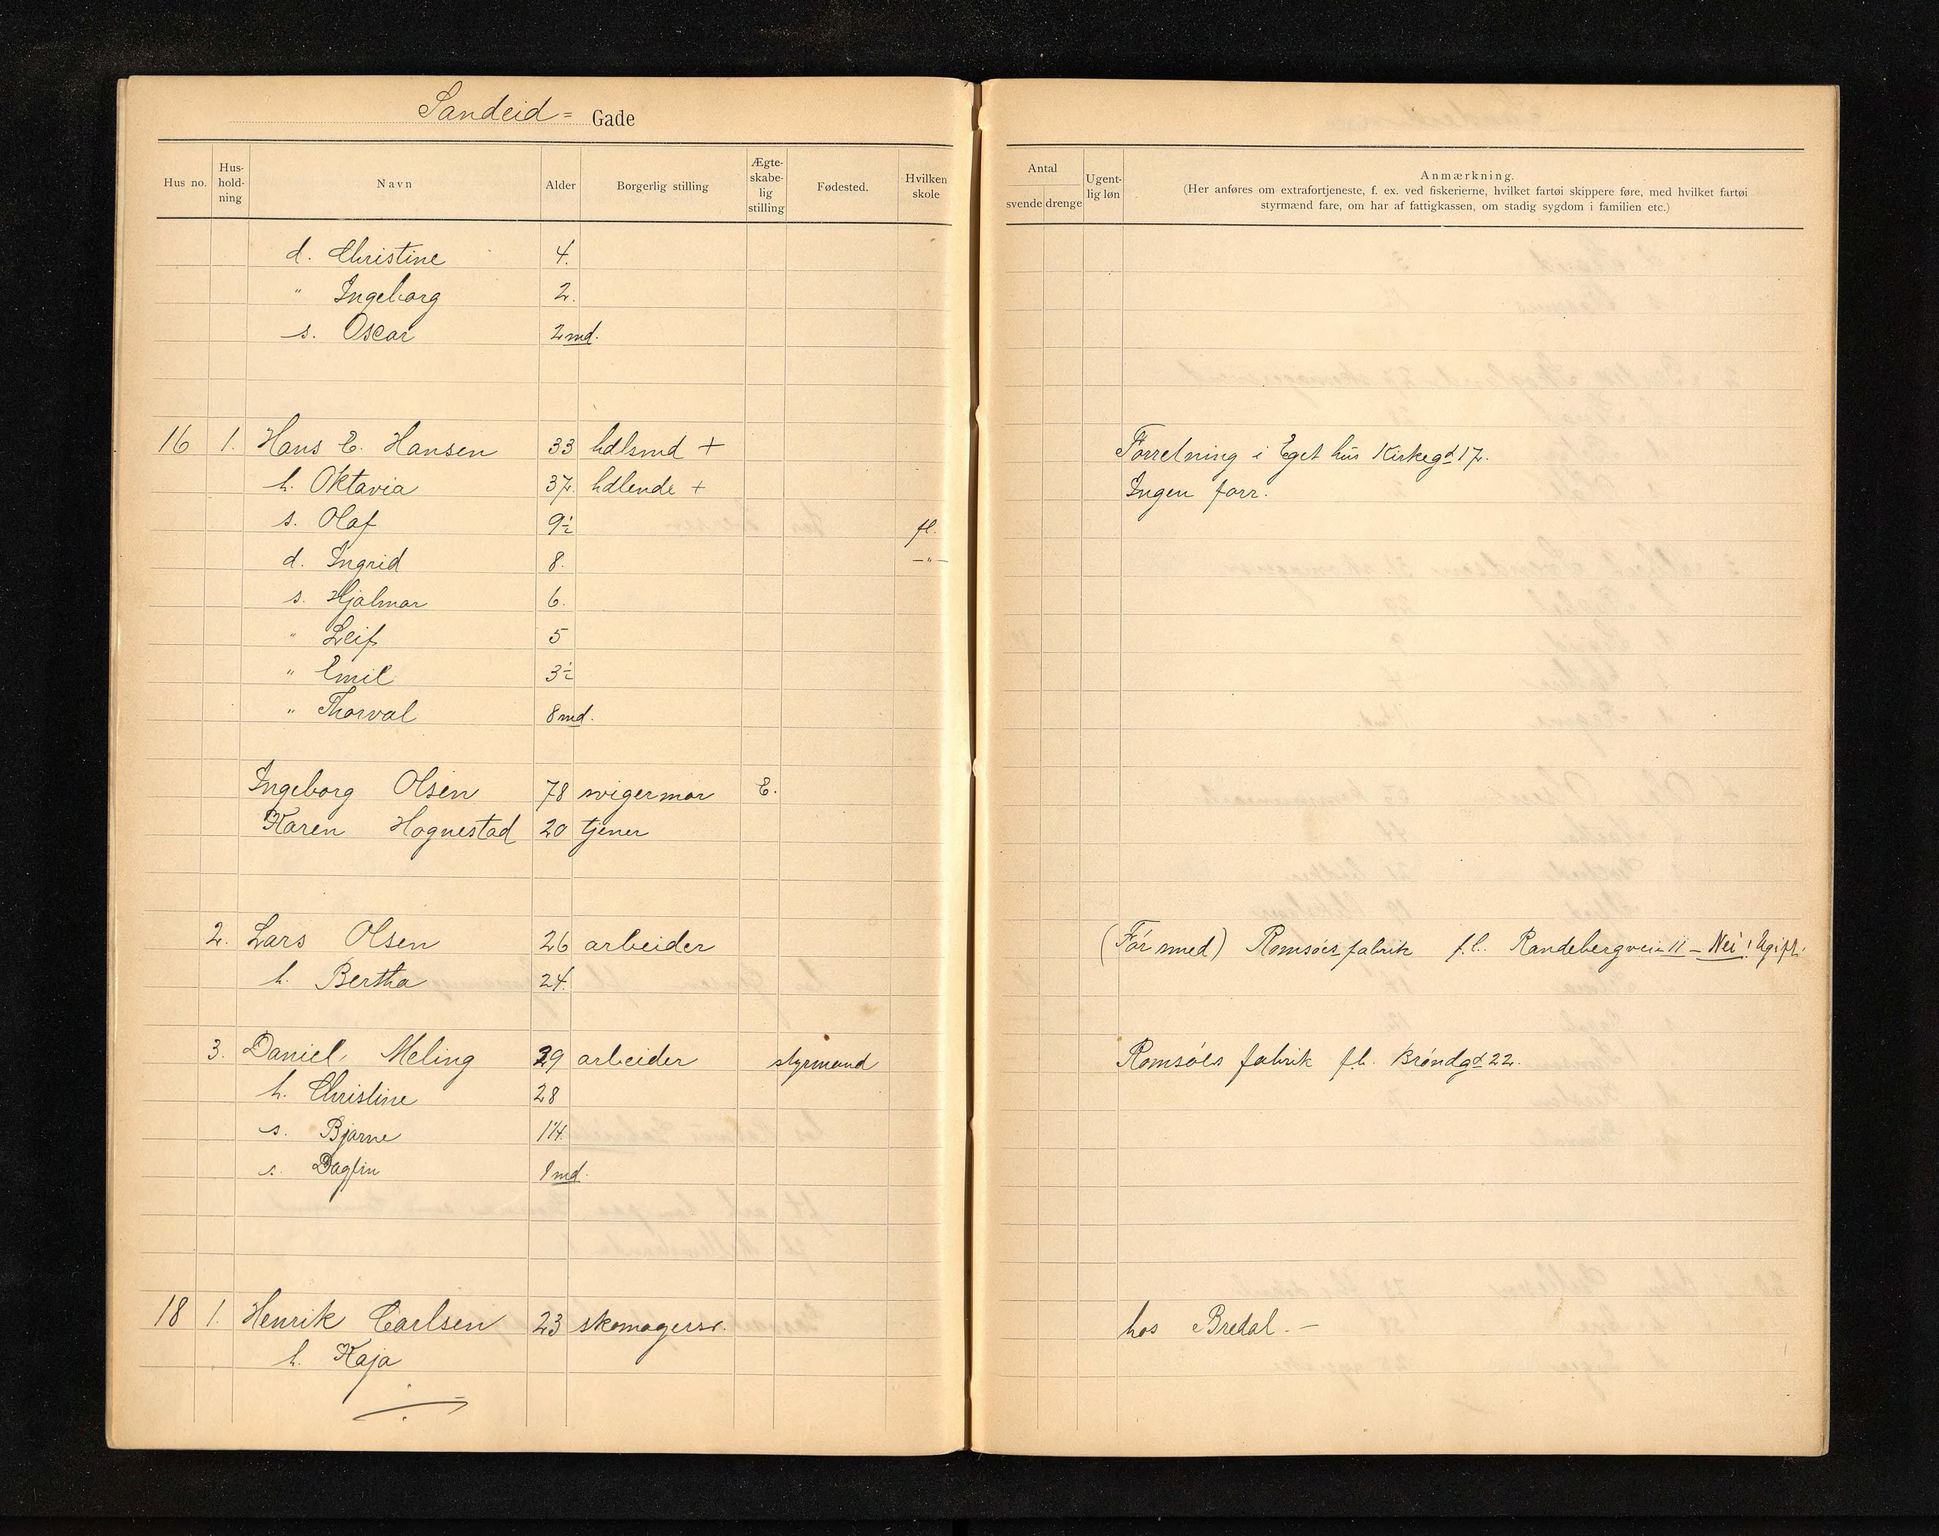 Sandeid= Gade
Hus no. Hus-hold-ning Navn Alder Borgerlig stilling Ægte-skabe-lig stilling Fødested. Hvilken skole
Antal svende drenge Ugent-lig løn Anmærkning.
(Her anføres om extrafortjeneste, f. ex. ved fiskerierne, hvilket fartøi skippere føre, med hvilket fartøi
styrmænd fare, om har af fattigkassen, om stadig sygdom i familien etc.)
d. Christine 4.
" Ingeborg 2.
s. Oscar 2 md.
16 1. Hans E. Hansen 33 hdlsmd + Forretning i Eget hus Kirkegd 17.
h. Oktavia 37. hdlende + Ingen forr.
s. Olaf 9½ fl.
d. Ingrid 8. -"-
s. Hjalmar 6.
" Leif 5
" Emil 3½
" Thorval 8 md.
Ingeborg Olsen 78 svigermor E.
Karen Hognestad 20 tjener
2. Lars Olsen 26 arbeider (Før smed) Romsøes fabrik f.l. Randebergvei 11 – Nei! Ugift.
h. Bertha 24.
3. Daniel Meling 29 arbeider styrmand Romsøes fabrik f.l. Brøndgd 22.
h. Christine 28
s. Bjarne 1¼
s. Dagfin 1 md.
18 1. Henrik Carlsen 23 skomagersv. hos Bredal. –
h. Kaja